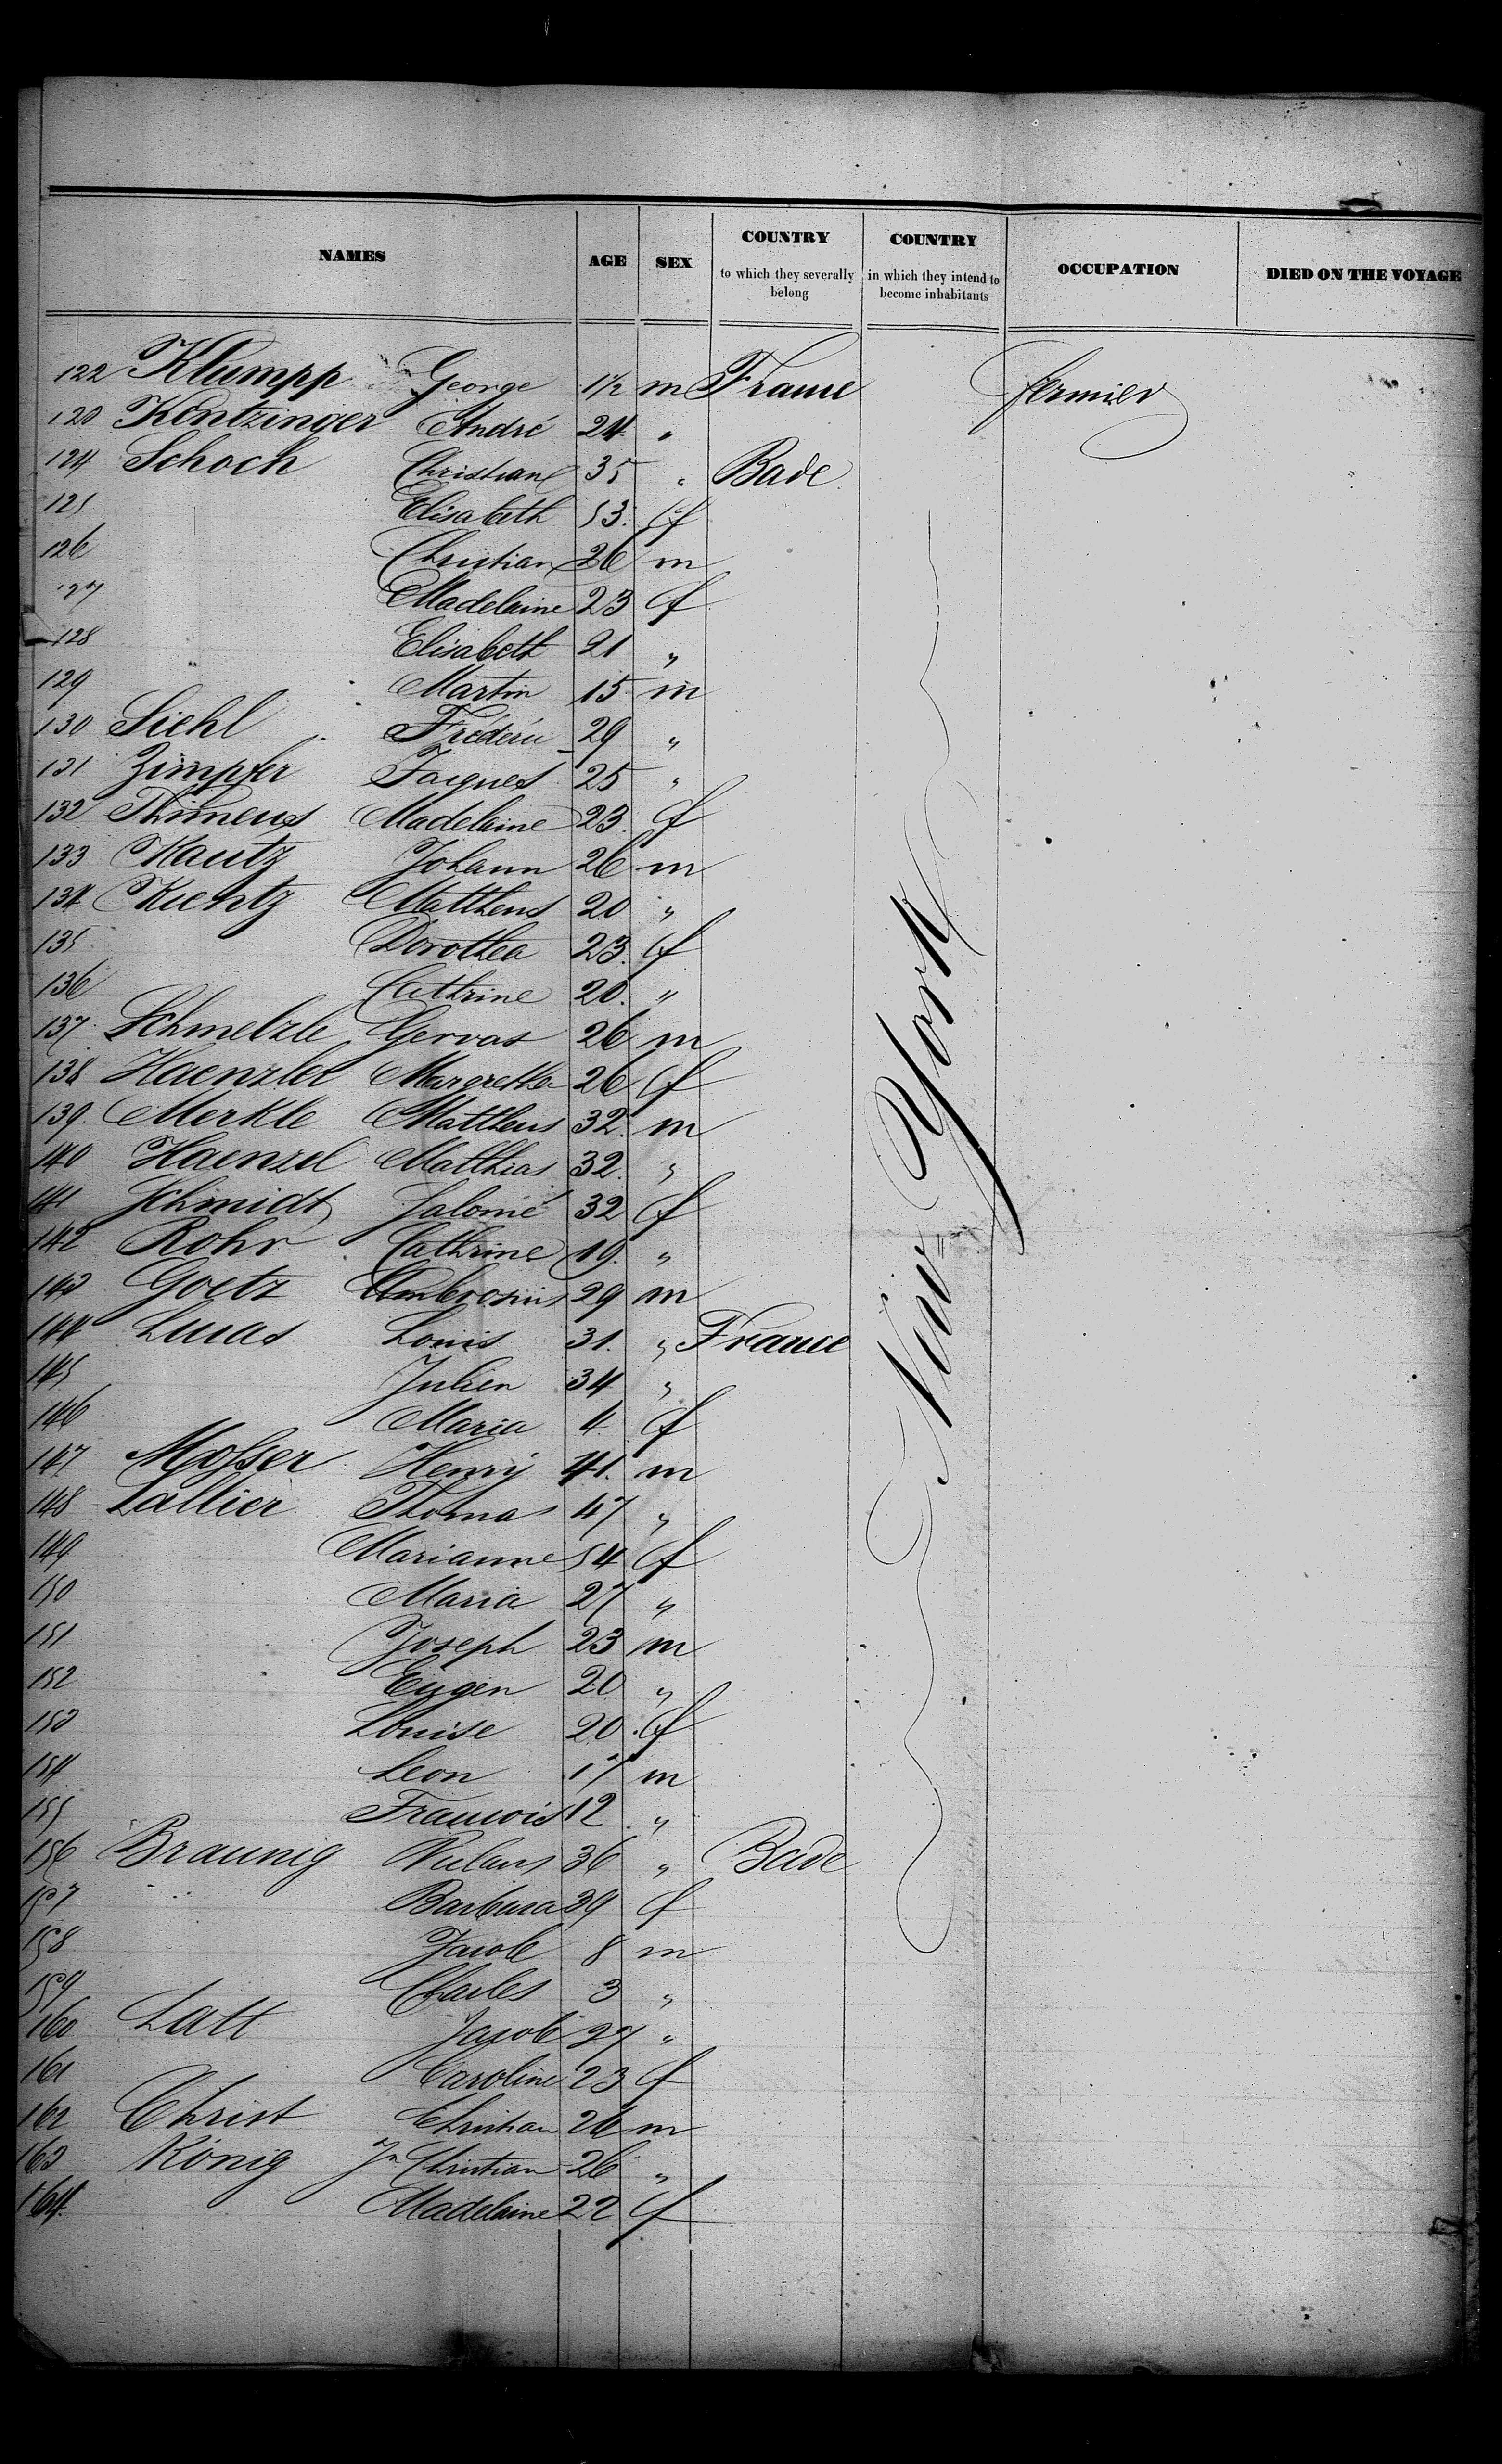 NAMES AGE SEX COUNTRY to which they severally belong COUNTRY in which they intend to become inhabitants OCCUPATION DIED ON THE VOYAGE
122 Klumpp George 1½ m France fermier
123 Kentzinger André 24 "
124 Schoch Christian 35 " Bade
125 Elisabeth 53 f
126 Christian 26 m
127 Madelaine 23 f
128 Elisabeth 21 "
129 Martin 15 m
130 Siehl Fréderic 29 "
131 Zimpfer Jacques 25 "
132 Madelaine 23 f
133 Kautz Johann 26 m
134 Kientz Mattheus 20 "
135 Dorothea 23 f
136 Cathrine 20 "
137 Schmelzle Gervas 26 m
138 Haenzler Margretha 26 f
139 Merkle Mattheus 32 m
140 Haenzel Matthias 32 "
141 Schmidt Salomé 32 f
142 Rohr Cathrine 19 "
143 Goetz Ambrosius 29 m
144 Lucas Louis 31 " France
145 Julien 34 "
146 Maria 4 f
147 Mosser Henry 41 m
148 Lallier Thomas 47 "
149 Marianne 54 f
150 Maria 27 "
151 Joseph 23 m
152 Eugen 20 "
153 Louise 20 f
154 Leon 17 m
155 Francois 12 "
156 Braunig 36 " Bade
157 Barbara 39 f
158 Jacob 8 m
159 Charles 3 "
160 Latt Jacob 27 "
161 Caroline 23 f
162 Christ Christian 26 m
163 König Jn Christian 26 "
164 Madelaine 22 f
New=York